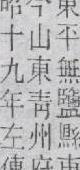 東平無鹽縣東
今山東青州府
昭十九年左傳